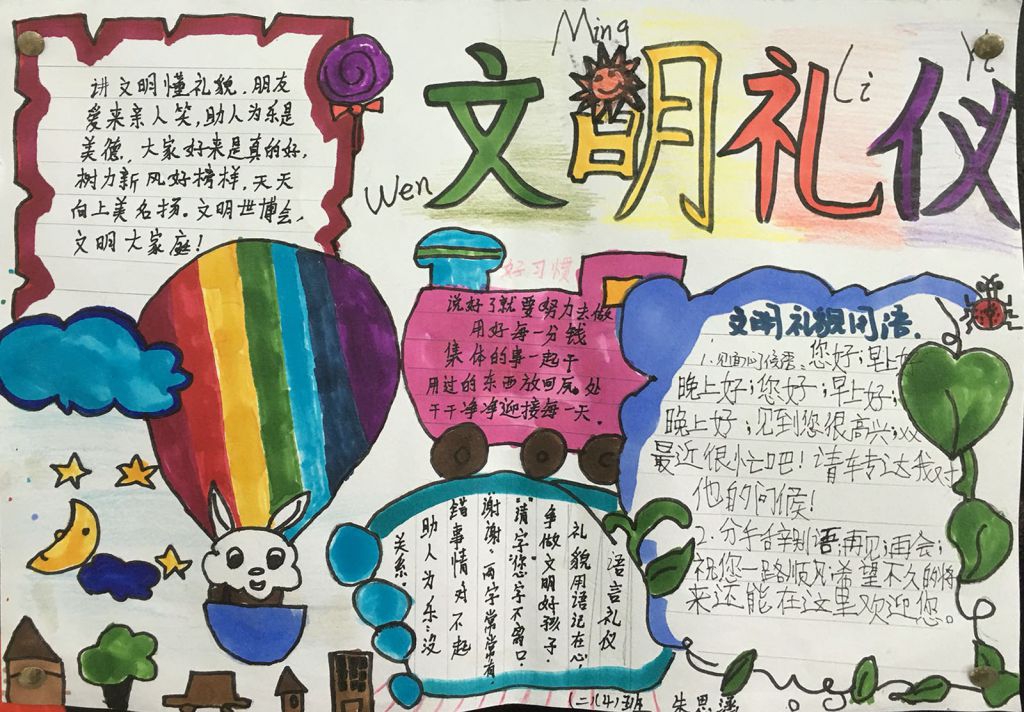 Wen Ming Li Yi
文明礼仪
讲文明懂礼貌,朋友
爱来亲人笑,助人为乐是
美德,大家好来是真的好,
树力新风好榜样,天天
向上美名扬。文明世博会,
文明大家庭!
好习惯
说好了就要努力去做
用好每一分钱
集体的事一起干
用过的东西放回原处
干干净净迎接每一天.
语言礼仪
礼貌用语记在心,
争做文明好孩子.
"请"字"您"字不离口,
谢谢,两字常常有,
错事情对不起
助人为乐:没
关系.
文明礼貌用语.
1.见面问候语:您好;早上好
晚上好;您好;早上好;
晚上好;见到您很高兴;XX
最近很忙吧!请车专达我对
他的问候!
2.分手辞别语:再见;再会;
祝您一路顺风;希望不久的将
来还能在这里欢迎您。
(二)(4)班 朱思涵